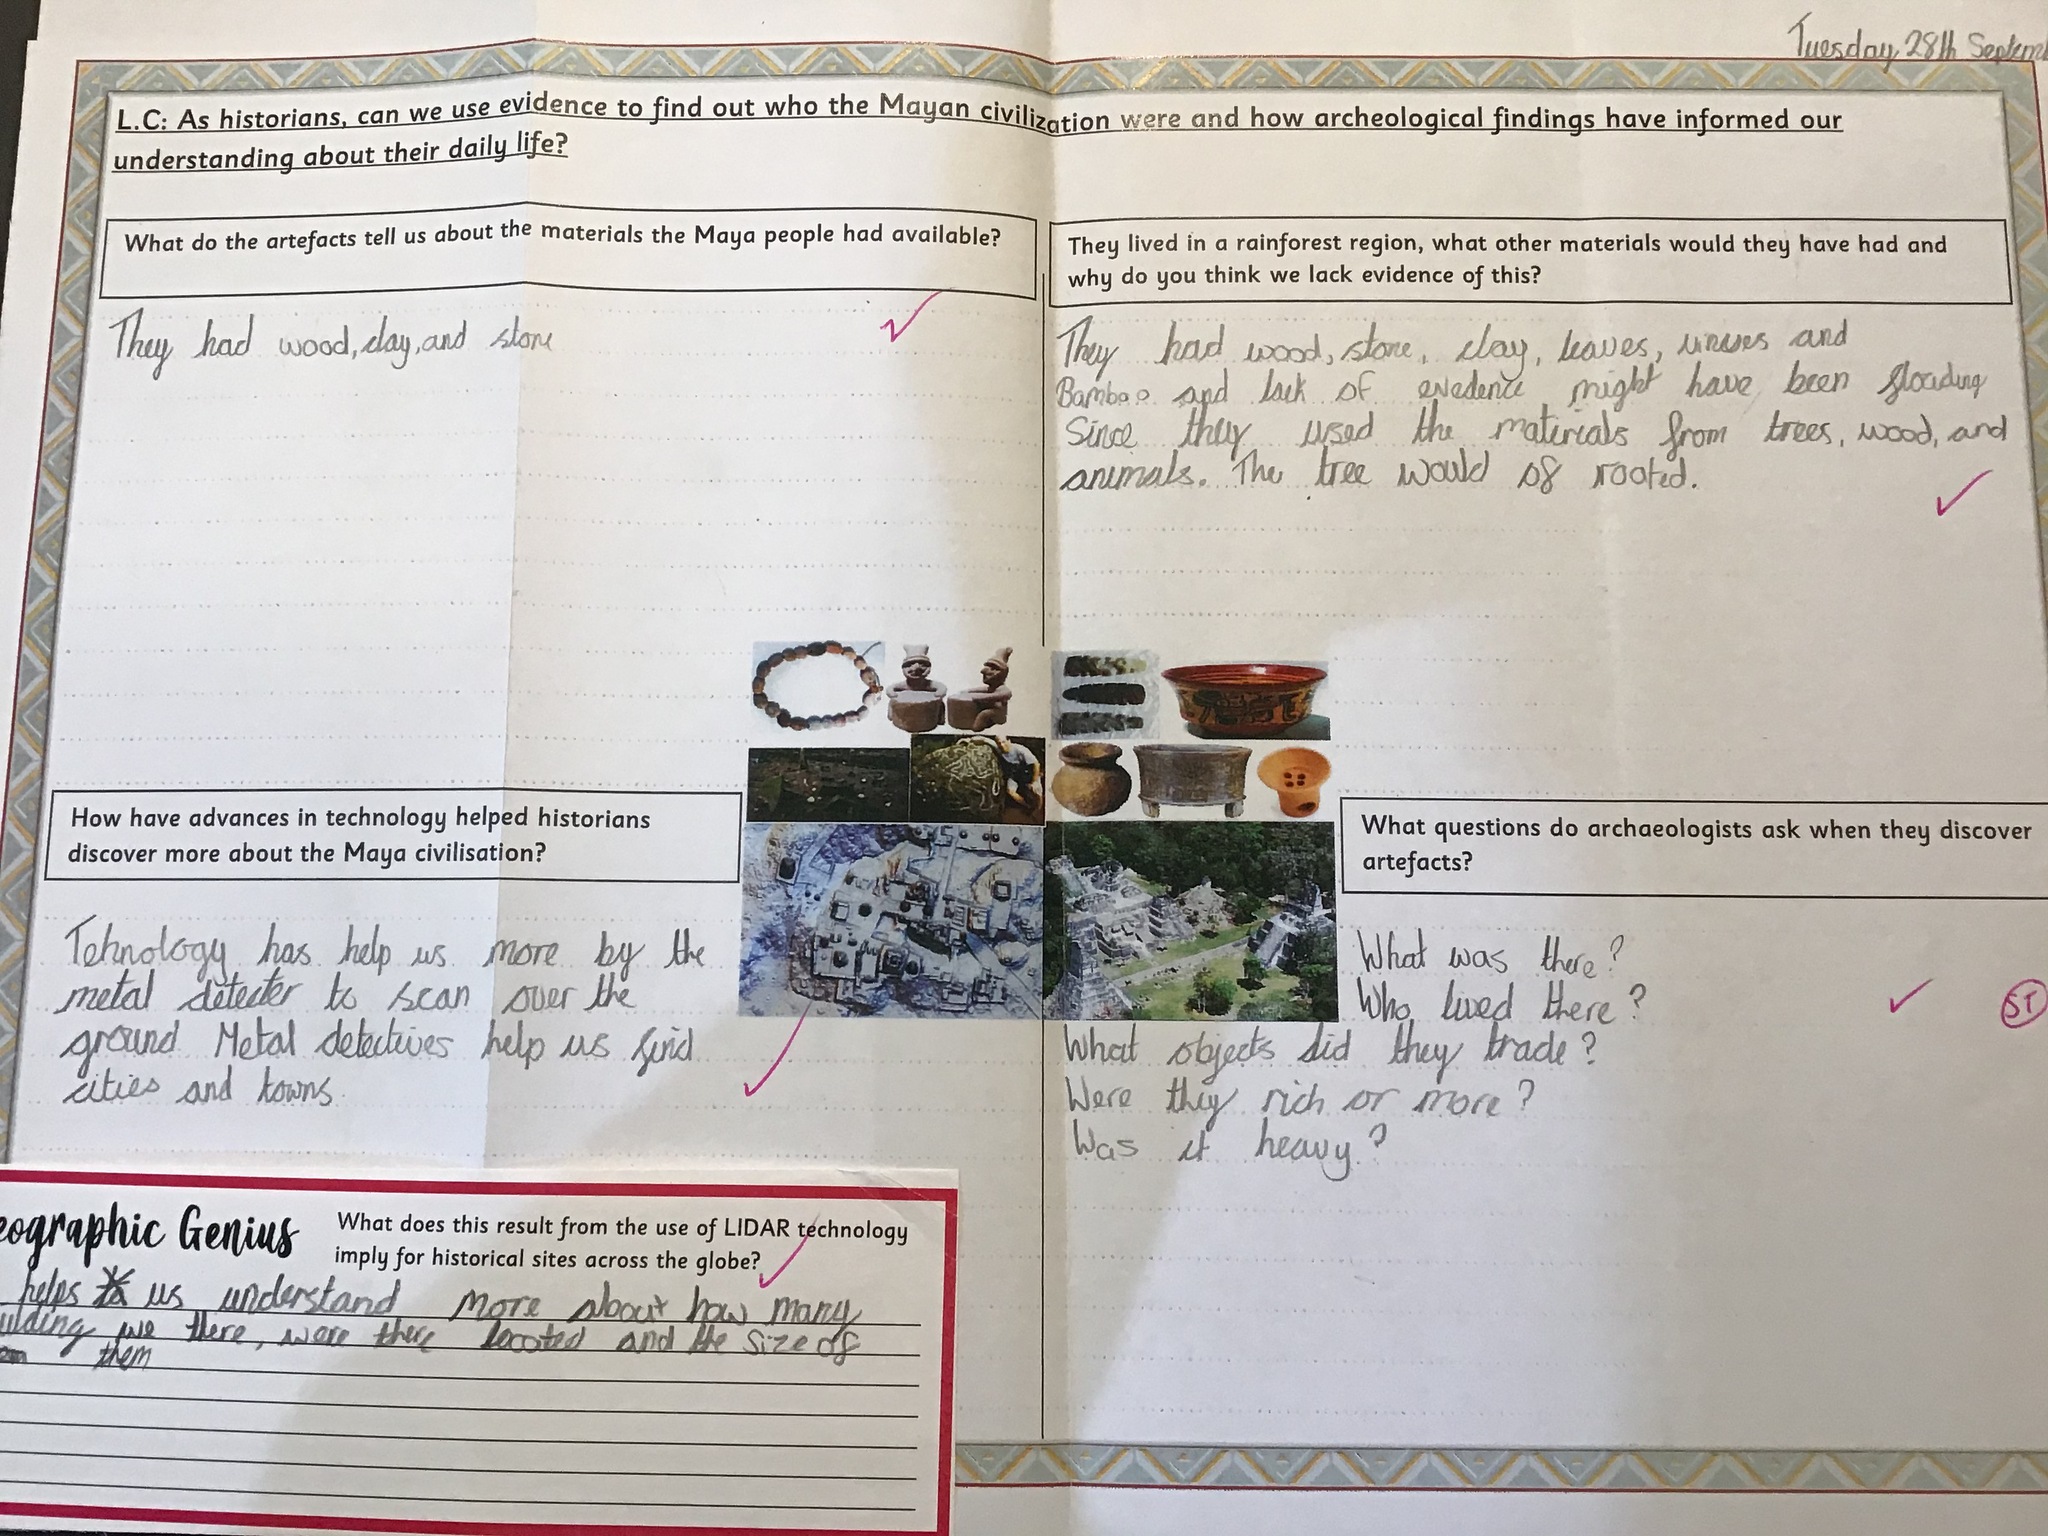 Tuesday 28th Septem
L.C: As historians, can we use evidence to find out who the Mayan civilization were and how archeological findings have informed our
understanding about their daily life?
What do the artefacts tell us about the materials the Maya people had available?
They had wood, clay, and stone
They lived in a rainforest region, what other materials would they have had and
why do you think we lack evidence of this?
They had wood, stone, clay, leaves, and
Bamboo and lack of evedence might have been floading
Since they used the materials from trees, wood, and
animals. The tree would of rooted.
How have advances in technology helped historians
discover more about the Maya civilisation?
Tehnology has help us more by the
metal detecter to scan over the
ground Metal detectives help us find
cities and towns.
What questions do archaeologists ask when they discover
artefacts?
What was there?
Who lived there?
What objects did they trade?
Were they rich or more?
Was it heavy?
ST
eographic Genius
What does this result from the use of LIDAR technology
imply for historical sites across the globe?
helps us understand more about how many
uilding we there, were there located and the size of
them